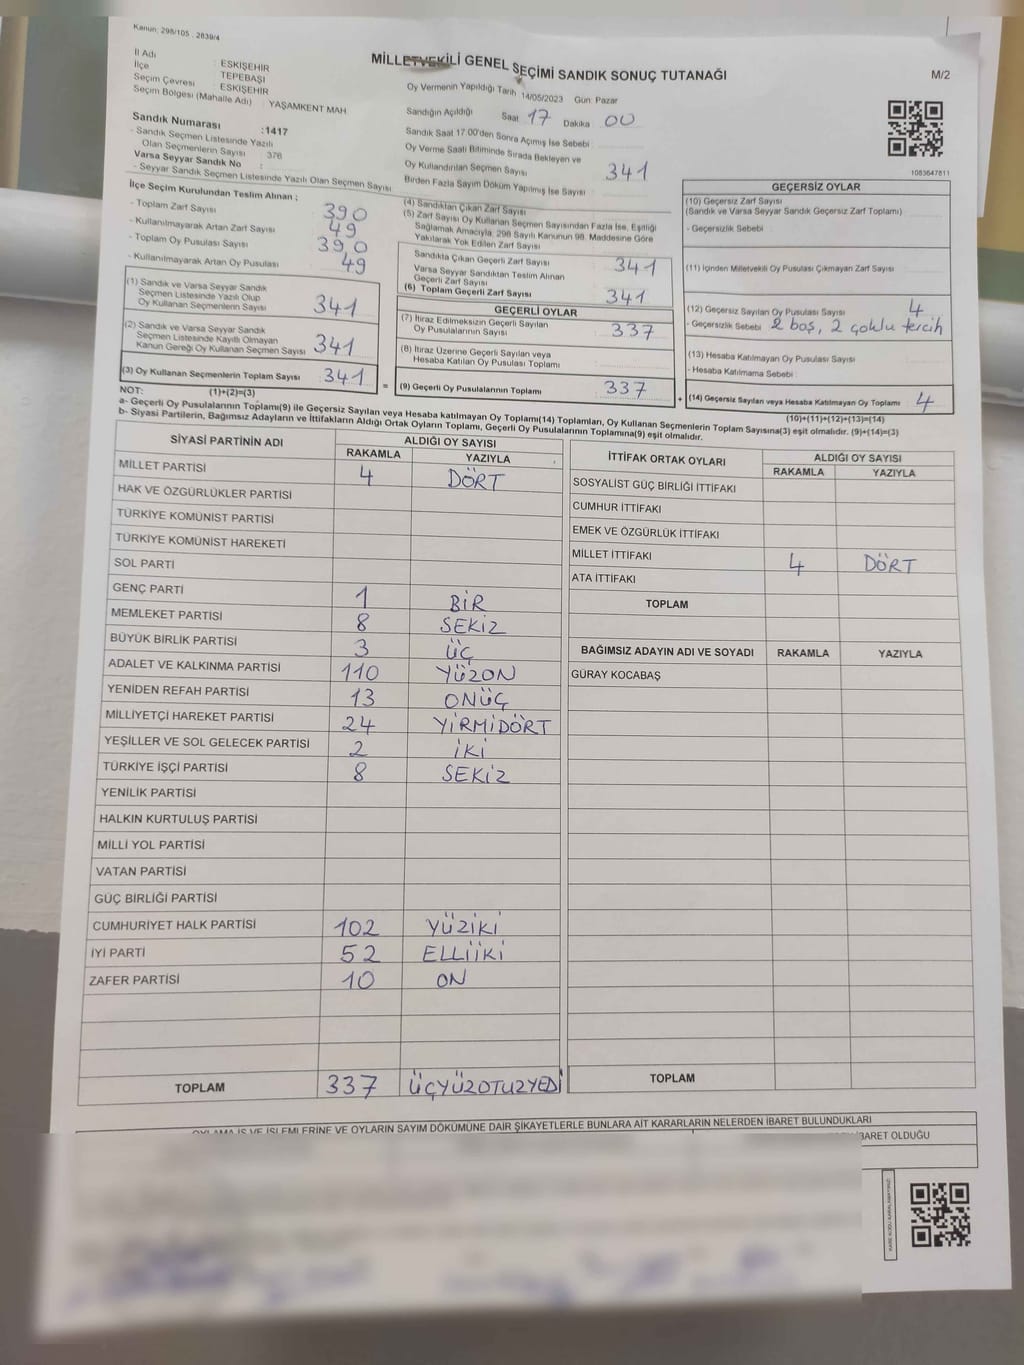 Kanun: 298/105 . 2839/4
MİLLETVEKİLİ GENEL SEÇİMİ SANDIK SONUÇ TUTANAĞI
M/2
İl Adı : ESKİŞEHİR
İlçe : TEPEBAŞI
Seçim Çevresi : ESKİŞEHİR
Seçim Bölgesi (Mahalle Adı) : YAŞAMKENT MAH
Sandık Numarası :1417
- Sandık Seçmen Listesinde Yazılı
Olan Seçmenlerin Sayısı : 376
Varsa Seyyar Sandık No :
- Seyyar Sandık Seçmen Listesinde Yazılı Olan Seçmen Sayısı
Oy Vermenin Yapıldığı Tarih 14/05/2023 Gün: Pazar
Sandığın Açıldığı Saat 17 Dakika 00
Sandık Saat 17:00'den Sonra Açımış İse Sebebi
Oy Verme Saati Bitiminde Sırada Bekleyen ve
Oy Kullandırılan Seçmen Sayısı 341
Birden Fazla Sayım Döküm Yapılmış İse Sayısı
1083647811
İlçe Seçim Kurulundan Teslim Alınan ;
- Toplam Zarf Sayısı 390
- Kullanılmayarak Artan Zarf Sayısı 49
- Toplam Oy Pusulası Sayısı 390
- Kullanılmayarak Artan Oy Pusulası 49
(1) Sandık ve Varsa Seyyar Sandık
Seçmen Listesinde Yazılı Olup
Oy Kullanan Seçmenlerin Sayısı 341
(2) Sandık ve Varsa Seyyar Sandık
Seçmen Listesinde Kayıtlı Olmayan
Kanun Gereği Oy Kullanan Seçmen Sayısı 341
(3) Oy Kullanan Seçmenlerin Toplam Sayısı 341
(1)+(2)=(3)
(4) Sandıktan Çıkan Zarf Sayısı
(5) Zarf Sayısı Oy Kullanan Seçmen Sayısından Fazla İse, Eşitliği
Sağlamak Amacıyla, 298 Sayılı Kanunun 98. Maddesine Göre
Yakılarak Yok Edilen Zarf Sayısı
Sandıkta Çıkan Geçerli Zarf Sayısı 341
Varsa Seyyar Sandıktan Teslim Alınan
Geçerli Zarf Sayısı
(6) Toplam Geçerli Zarf Sayısı 341
GEÇERLİ OYLAR
(7) İtiraz Edilmeksizin Geçerli Sayılan
Oy Pusulalarının Sayısı 337
(8) İtiraz Üzerine Geçerli Sayılan veya
Hesaba Katılan Oy Pusulası Toplamı
= (9) Geçerli Oy Pusulalarının Toplamı 337 +
GEÇERSİZ OYLAR
(10) Geçersiz Zarf Sayısı
(Sandık ve Varsa Seyyar Sandık Geçersiz Zarf Toplamı)
- Geçersizlik Sebebi
(11) İçinden Milletvekili Oy Pusulası Çıkmayan Zarf Sayısı
(12) Geçersiz Sayılan Oy Pusulası Sayısı 4
- Geçersizlik Sebebi 2 boş, 2 çoklu tercih
(13) Hesaba Katılmayan Oy Pusulası Sayısı
- Hesaba Katılmama Sebebi
(14) Geçersiz Sayılan veya Hesaba Katılmayan Oy Toplamı 4
(10)+(11)+(12)+(13)=(14)
NOT:
a- Geçerli Oy Pusulalarının Toplamı(9) ile Geçersiz Sayılan veya Hesaba katılmayan Oy Toplamı(14) Toplamları, Oy Kullanan Seçmenlerin Toplam Sayısına(3) eşit olmalıdır. (9)+(14)=(3)
b- Siyasi Partilerin, Bağımsız Adayların ve İttifakların Aldığı Ortak Oyların Toplamı, Geçerli Oy Pusulalarının Toplamına(9) eşit olmalıdır.
SİYASİ PARTİNİN ADI ALDIĞI OY SAYISI
RAKAMLA YAZIYLA
MİLLET PARTİSİ 4 DÖRT
HAK VE ÖZGÜRLÜKLER PARTİSİ
TÜRKİYE KOMÜNİST PARTİSİ
TÜRKİYE KOMÜNİST HAREKETİ
SOL PARTİ
GENÇ PARTİ 1 BİR
MEMLEKET PARTİSİ 8 SEKİZ
BÜYÜK BİRLİK PARTİSİ 3 ÜÇ
ADALET VE KALKINMA PARTİSİ 110 YÜZON
YENİDEN REFAH PARTİSİ 13 ONÜÇ
MİLLİYETÇİ HAREKET PARTİSİ 24 YİRMİDÖRT
YEŞİLLER VE SOL GELECEK PARTİSİ 2 İKİ
TÜRKİYE İŞÇİ PARTİSİ 8 SEKİZ
YENİLİK PARTİSİ
HALKIN KURTULUŞ PARTİSİ
MİLLİ YOL PARTİSİ
VATAN PARTİSİ
GÜÇ BİRLİĞİ PARTİSİ
CUMHURİYET HALK PARTİSİ 102 YÜZİKİ
İYİ PARTİ 52 ELLİİKİ
ZAFER PARTİSİ 10 ON
TOPLAM 337 ÜÇYÜZOTUZYEDİ
İTTİFAK ORTAK OYLARI ALDIĞI OY SAYISI
RAKAMLA YAZIYLA
SOSYALİST GÜÇ BİRLİĞİ İTTİFAKI
CUMHUR İTTİFAKI
EMEK VE ÖZGÜRLÜK İTTİFAKI
MİLLET İTTİFAKI 4 DÖRT
ATA İTTİFAKI
TOPLAM
BAĞIMSIZ ADAYIN ADI VE SOYADI RAKAMLA YAZIYLA
GÜRAY KOCABAŞ
TOPLAM
OYLAMA İŞ VE İŞLEMLERİNE VE OYLARIN SAYIM DÖKÜMÜNE DAİR ŞİKAYETLERLE BUNLARA AİT KARARLARIN NELERDEN İBARET BULUNDUKLARI
İBARET OLDUĞU